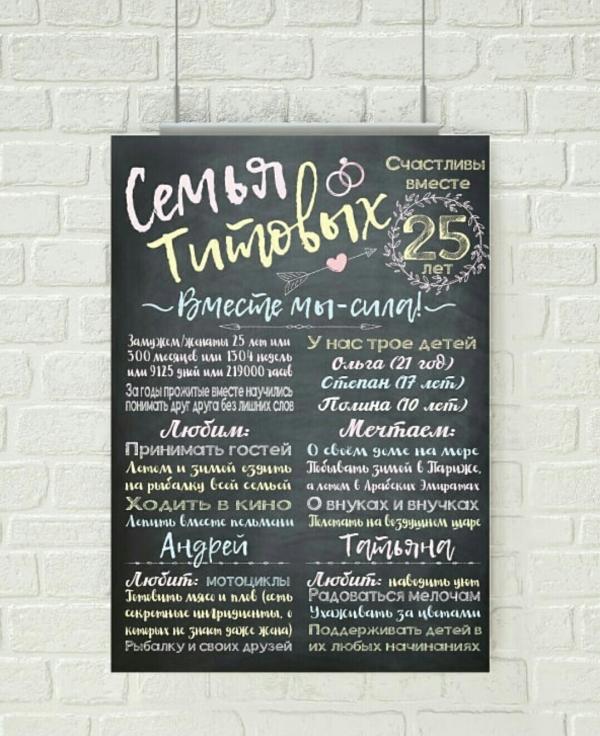 Семья
Титовых
Счастливы
вместе
25
лет
~Вместе мы-сила!~
Замужем/женаты 25 лет или
300 месяцев или 1304 недель
или 9125 дней или 219000 часов
За годы прожитые вместе научились
понимать друг друга без лишних слов
У нас трое детей
Ольга (21 год)
Степан (17 лет)
Полина (10 лет)
Любим:
Принимать гостей
Летом и зимой ездить
на рыбалку всей семьей
Ходить в кино
Лепить вместе пельмени
Мечтаем:
О своём доме на море
Побывать зимой в Париже,
а летом в Арабских Эмиратах
О внуках и внучках
Полетать на воздушном шаре
Андрей
Любит: мотоциклы
Готовить мясо и плов (есть
секретные ингридиенты, о
которых не знает даже жена)
Рыбалку и своих друзей
Татьяна
Любит: наводить уют
Радоваться мелочам
Ухаживать за цветами
Поддерживать детей в
их любых начинаниях